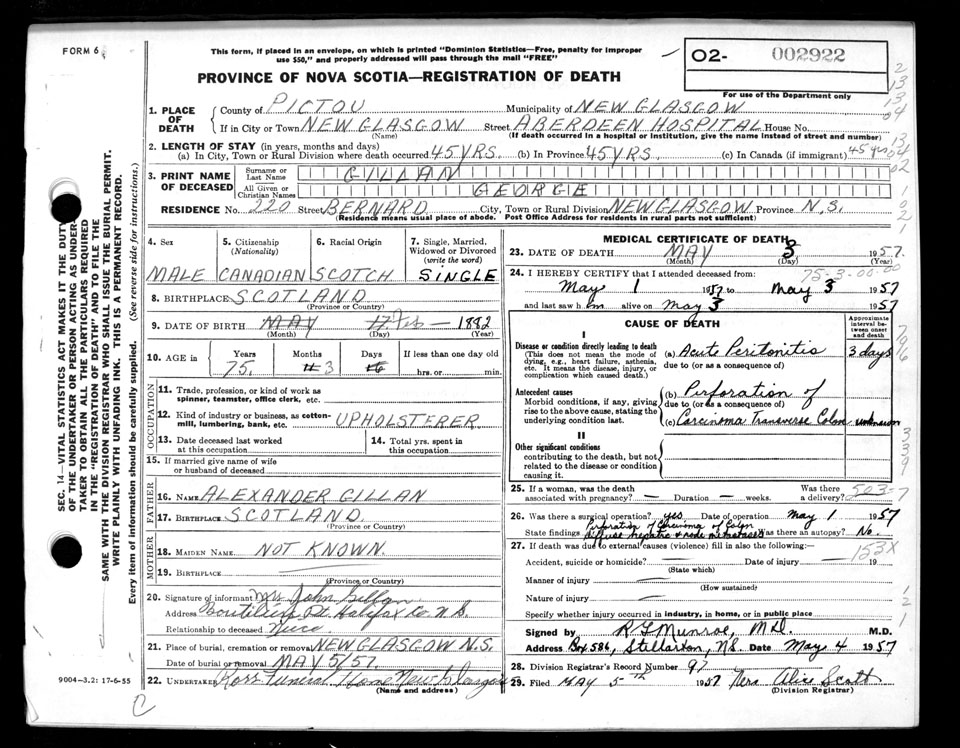 FORM 6
This form, if placed in an envelope, on which is printed "Dominion Statistics—Free, penalty for improper
use $50," and properly addressed will pass through the mail "FREE"
PROVINCE OF NOVA SCOTIA—REGISTRATION OF DEATH
02- 002922
For use of the Department only
1. PLACE OF DEATH
County of PICTOU Municipality of NEW GLASGOW
If in City or Town NEW GLASGOW Street ABERDEEN HOSPITAL House No.
(Name) (If death occurred in a hospital or institution, give the name instead of street and number)
2. LENGTH OF STAY (in years, months and days)
(a) In City, Town or Rural Division where death occurred 45 YRS. (b) In Province 45 YRS. (c) In Canada (if immigrant) 45 yrs
3. PRINT NAME OF DECEASED
Surname or Last Name GILLAN
All Given or Christian Names GEORGE
RESIDENCE No. 220 Street BERNARD City, Town or Rural Division NEW GLASGOW Province N.S.
(Residence means usual place of abode. Post Office Address for residents in rural parts not sufficient)
4. Sex MALE
5. Citizenship (Nationality) CANADIAN
6. Racial Origin SCOTCH
7. Single, Married, Widowed or Divorced (write the word) SINGLE
8. BIRTHPLACE SCOTLAND
(Province or Country)
9. DATE OF BIRTH MAY 17 Feb — 1882
(Month) (Day) (Year)
10. AGE in Years 75. Months 3 Days If less than one day old
hrs. or min.
OCCUPATION
11. Trade, profession, or kind of work as
spinner, teamster, office clerk, etc.
12. Kind of industry or business, as cotton-
mill, lumbering, bank, etc. UPHOLSTERER
13. Date deceased last worked
at this occupation
14. Total yrs. spent in
this occupation
15. If married give name of wife
or husband of deceased
FATHER
16. NAME ALEXANDER GILLAN
17. BIRTHPLACE SCOTLAND.
(Province or Country)
MOTHER
18. MAIDEN NAME NOT KNOWN.
19. BIRTHPLACE
(Province or Country)
20. Signature of informant Mrs John Gillan
Address Boutiliers Pt. Halifax Co. N.S.
Relationship to deceased Niece
21. Place of burial, cremation or removal NEW GLASGOW N.S.
Date of burial or removal MAY 5/57.
22. UNDERTAKER Ross Funeral Home New Glasgow
(Name and address)
MEDICAL CERTIFICATE OF DEATH
23. DATE OF DEATH MAY 3 1957.
(Month) (Day) (Year)
24. I HEREBY CERTIFY that I attended deceased from: 75-3-00-00
May 1 1957 to May 3 1957
and last saw h im alive on May 3 1957
CAUSE OF DEATH
Approximate interval between onset and death
I
Disease or condition directly leading to death
(This does not mean the mode of
dying, e.g., heart failure, asthenia,
etc. It means the disease, injury, or
complication which caused death.)
(a) Acute Peritonitis 3 days
due to (or as a consequence of)
Antecedent causes
Morbid conditions, if any, giving
rise to the above cause, stating the
underlying condition last.
(b) Perforation of
due to (or as a consequence of)
(c) Carcinoma Transverse Colon unknown
II
Other significant conditions
contributing to the death, but not
related to the disease or condition
causing it.
25. If a woman, was the death
associated with pregnancy? — Duration — weeks. Was there
a delivery? 503-7
26. Was there a surgical operation? yes Date of operation May 1 1957
State findings Perforation of Carcinoma of Colon
diffuse hepatic & node metastases Was there an autopsy? No.
27. If death was due to external causes (violence) fill in also the following:— 153X
Accident, suicide or homicide? — Date of injury 19
(State which)
Manner of injury —
(How sustained)
Nature of injury —
Specify whether injury occurred in industry, in home, or in public place
Signed by R G Munroe, M.D. M.D.
Address Box 586, Stellarton, N.S. Date May 4 1957
28. Division Registrar's Record Number 97
29. Filed MAY 5TH 1957 Alice Scott
(Division Registrar)
9004-3.2: 17-6-55
C
SEC. 14—VITAL STATISTICS ACT MAKES IT THE DUTY
OF THE UNDERTAKER OR PERSON ACTING AS UNDER-
TAKER TO OBTAIN ALL THE PARTICULARS REQUIRED
IN THE "REGISTRATION OF DEATH" AND TO FILE THE
SAME WITH THE DIVISION REGISTRAR WHO SHALL ISSUE THE BURIAL PERMIT.
WRITE PLAINLY WITH UNFADING INK. THIS IS A PERMANENT RECORD.
Every item of information should be carefully supplied. (See reverse side for instructions.)